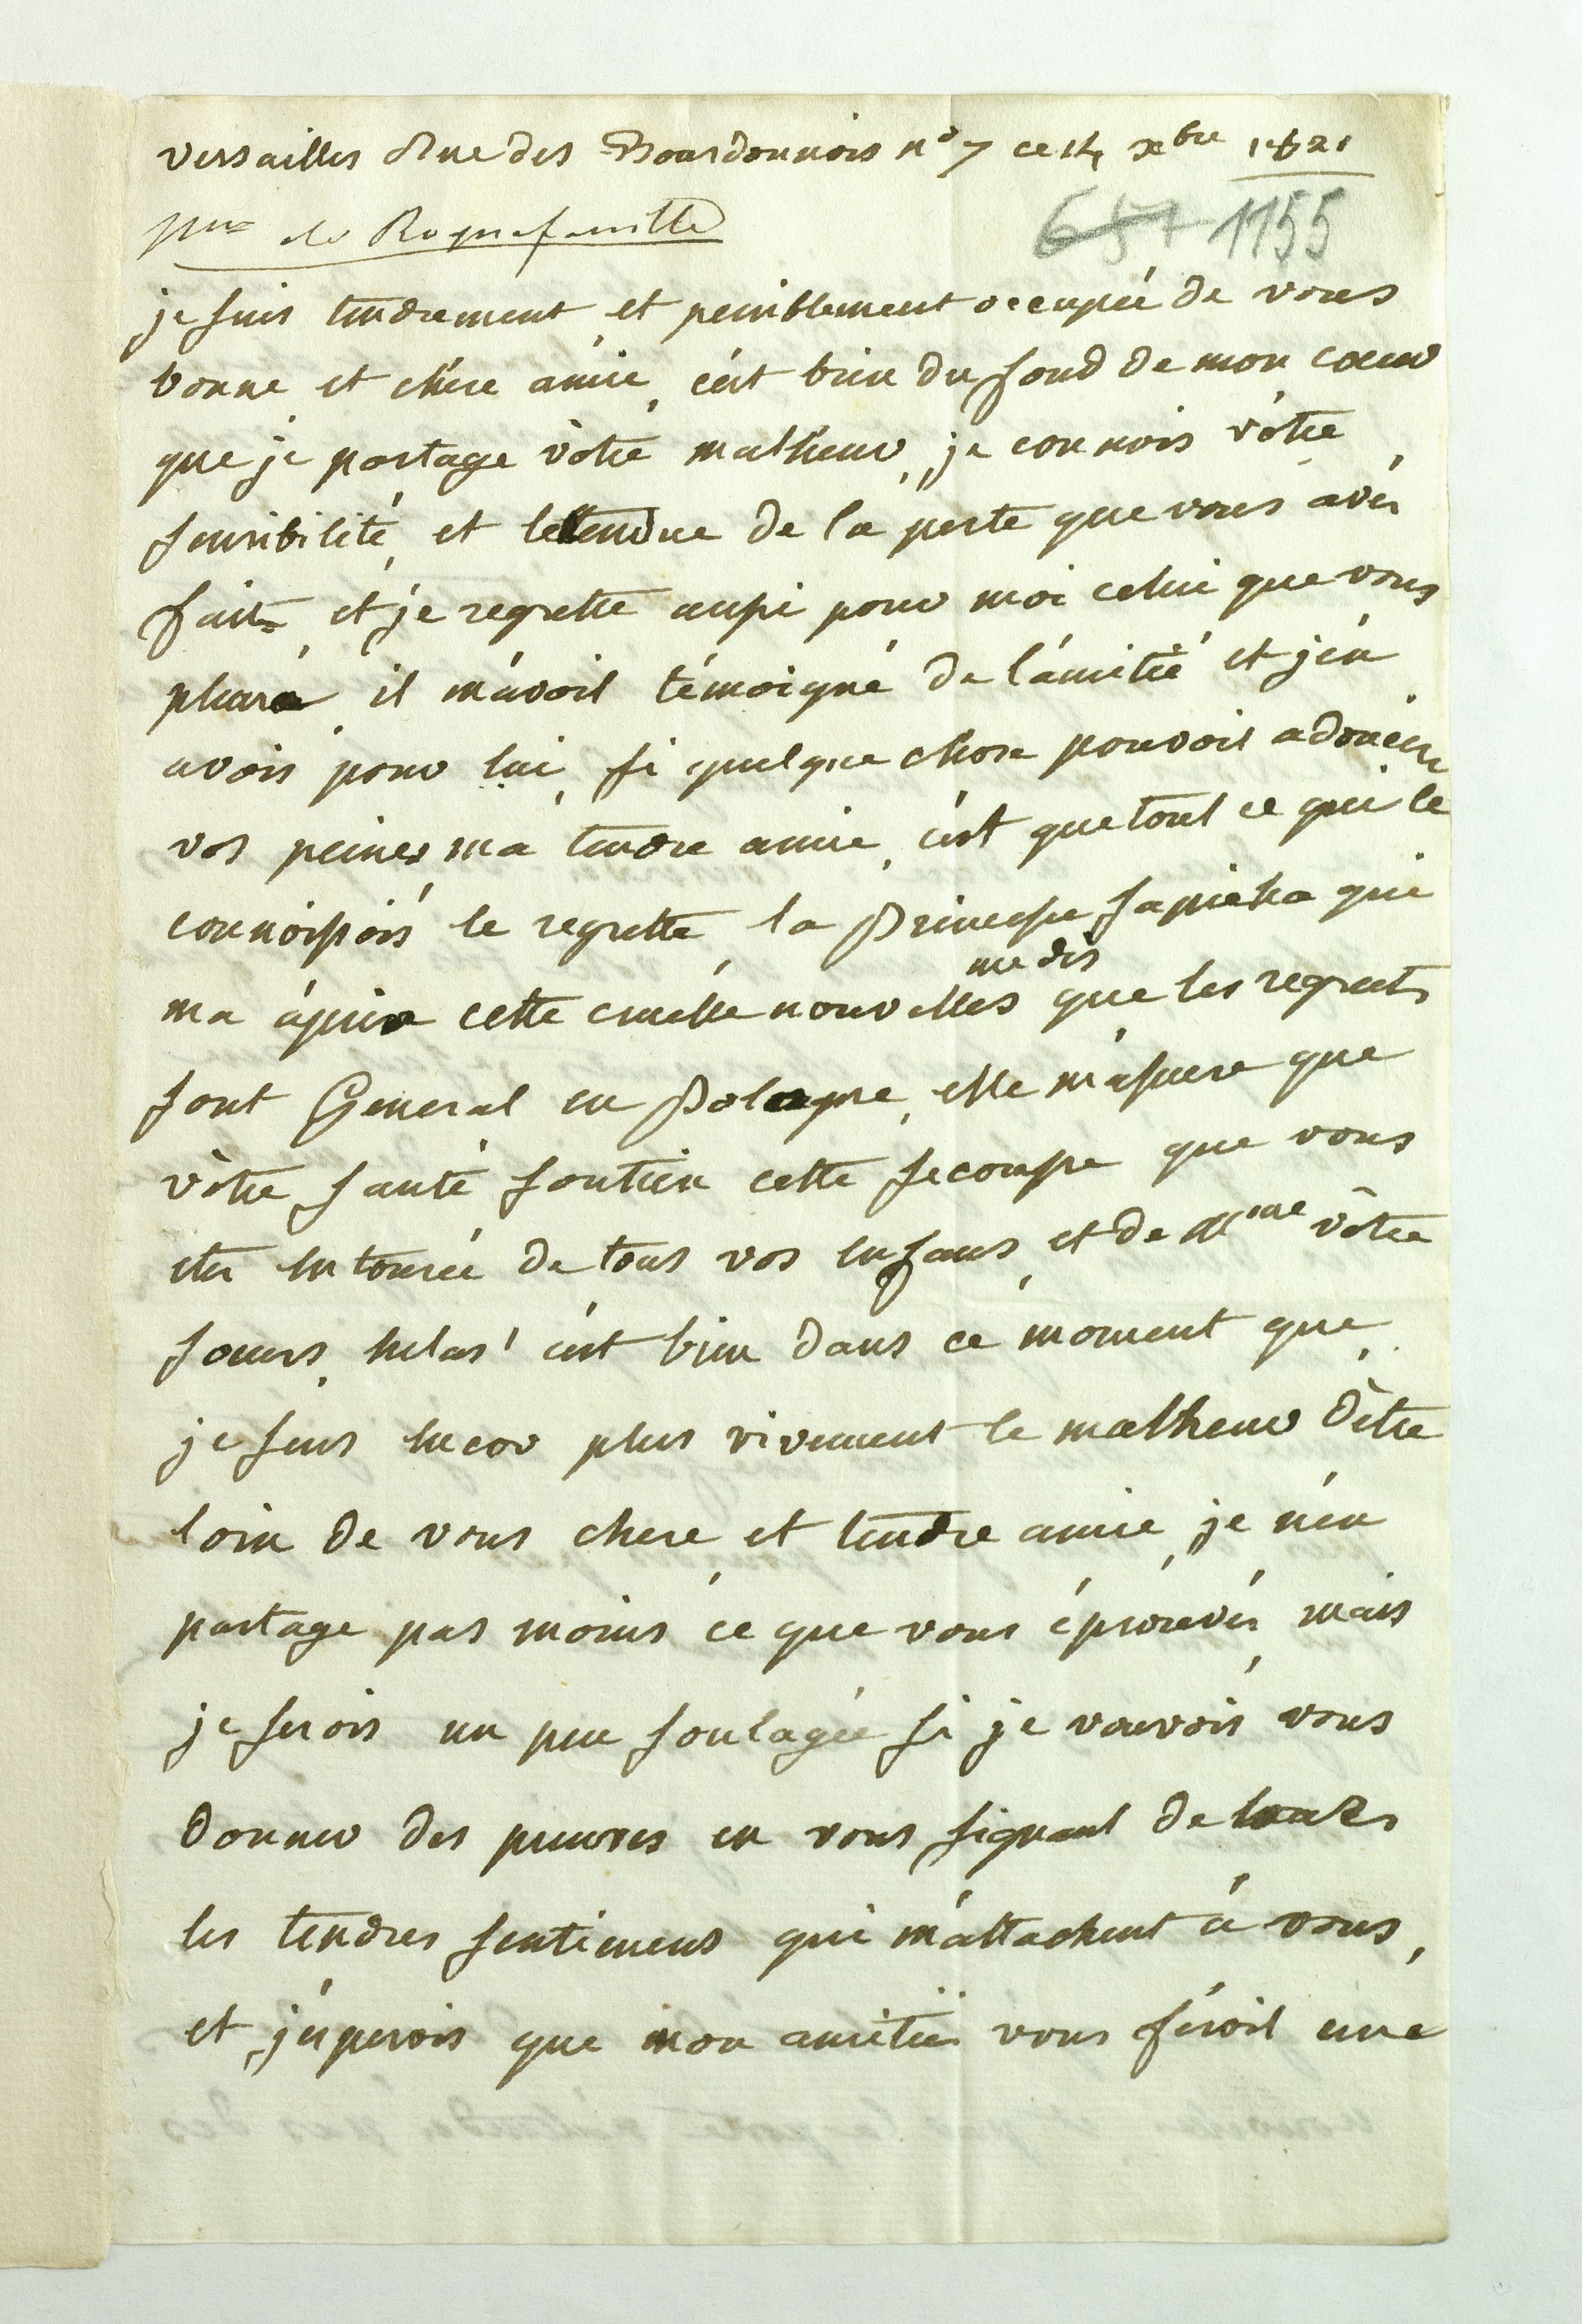 Versailles Rue des Bourdonnois n° 7 ce 14 xbre 1821
Mme de Roquefeuille
657 1155
je suis tendrement et peniblement occupée de vous
bonne et chére ámie, cést bien du fond de mon coeur
que je partage vôtre malheur, je connois vôtre
sensibilité, et lettendue de la perte que vous avés
faite, et je regrette aussi pour moi celui que vous
pluré, il mávoit témoigné de lámitié et jén
avois pour lui, si quelque chose pouvoit adoucir
vos peines, ma tendre amie, cést que tout ce qui le
connoissois le regrette, la Princesse Sapieha qui
me dis
ma ápris cette cruelle nouvelles que les regrets
sont General en Pologne, elle mássure que
vôtre santé soutien cette secousse que vous
etes entourée de tous vos enfans, et de Mme vôtre
soeurs, helas! cést bien dans ce moment que,
je sens encor plus vivement le malheur dêtre
loin de vous chere et tendre amie, je nén
partage pas moins ce que vous éprouvés, mais
je serois un peu soulagée si je pouvois vous
donner des preuves en vous signant de
les tendres sentimens qui máttachent á vous,
et jésperois que mon amitiée vous séroit une